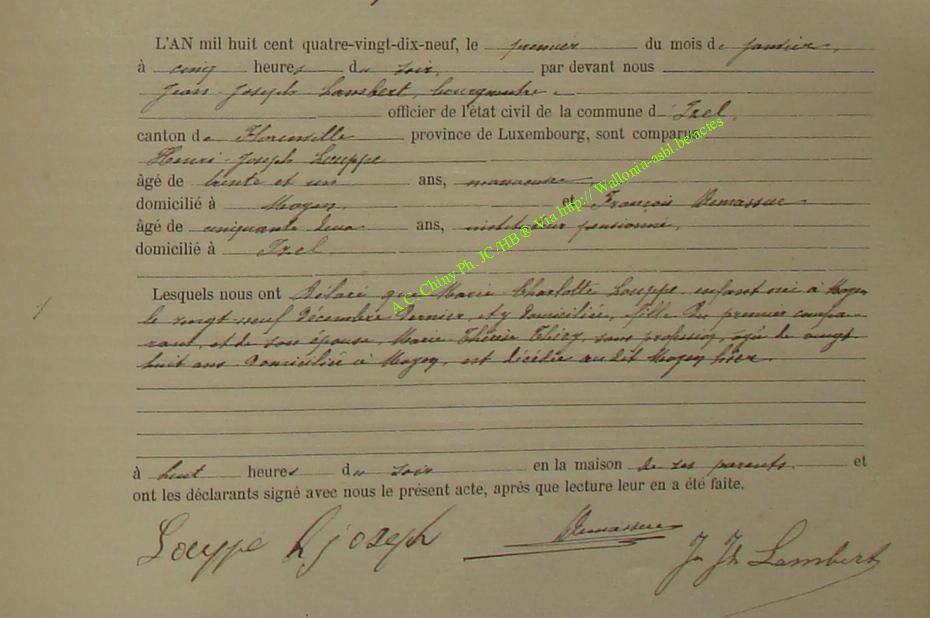 L'AN mil huit cent quatre-vingt-dix-neuf, le premier du mois de janvier,
à cinq heures du soir, par devant nous
Jean-Joseph Lambert, bourgmestre
officier de l'état civil de la commune d'Izel,
canton de Florenville province de Luxembourg, sont comparus
Henri-Joseph Louppe
âgé de trente et un ans, manœuvre
domicilié à Moyen, et François Demassue
âgé de cinquante deux ans, instituteur pensionné,
domicilié à Izel
A.C. Chiny Ph. JC/HB ® Via http://Wallonia-asbl.be/actes
Lesquels nous ont déclaré que Marie Charlotte Louppe, enfant né à Moyen
le vingt neuf décembre dernier, et y domiciliée, fille du premier compa-
rant, et de son épouse, Marie Thérèse Thiry, sans profession, âgée de vingt
huit ans domiciliée à Moyen, est décédée audit Moyen hier.
à huit heures du soir en la maison de ses parents. et
ont les déclarants signé avec nous le présent acte, après que lecture leur en a été faite.
Louppe hjoseph Demassue Jn Jh Lambert